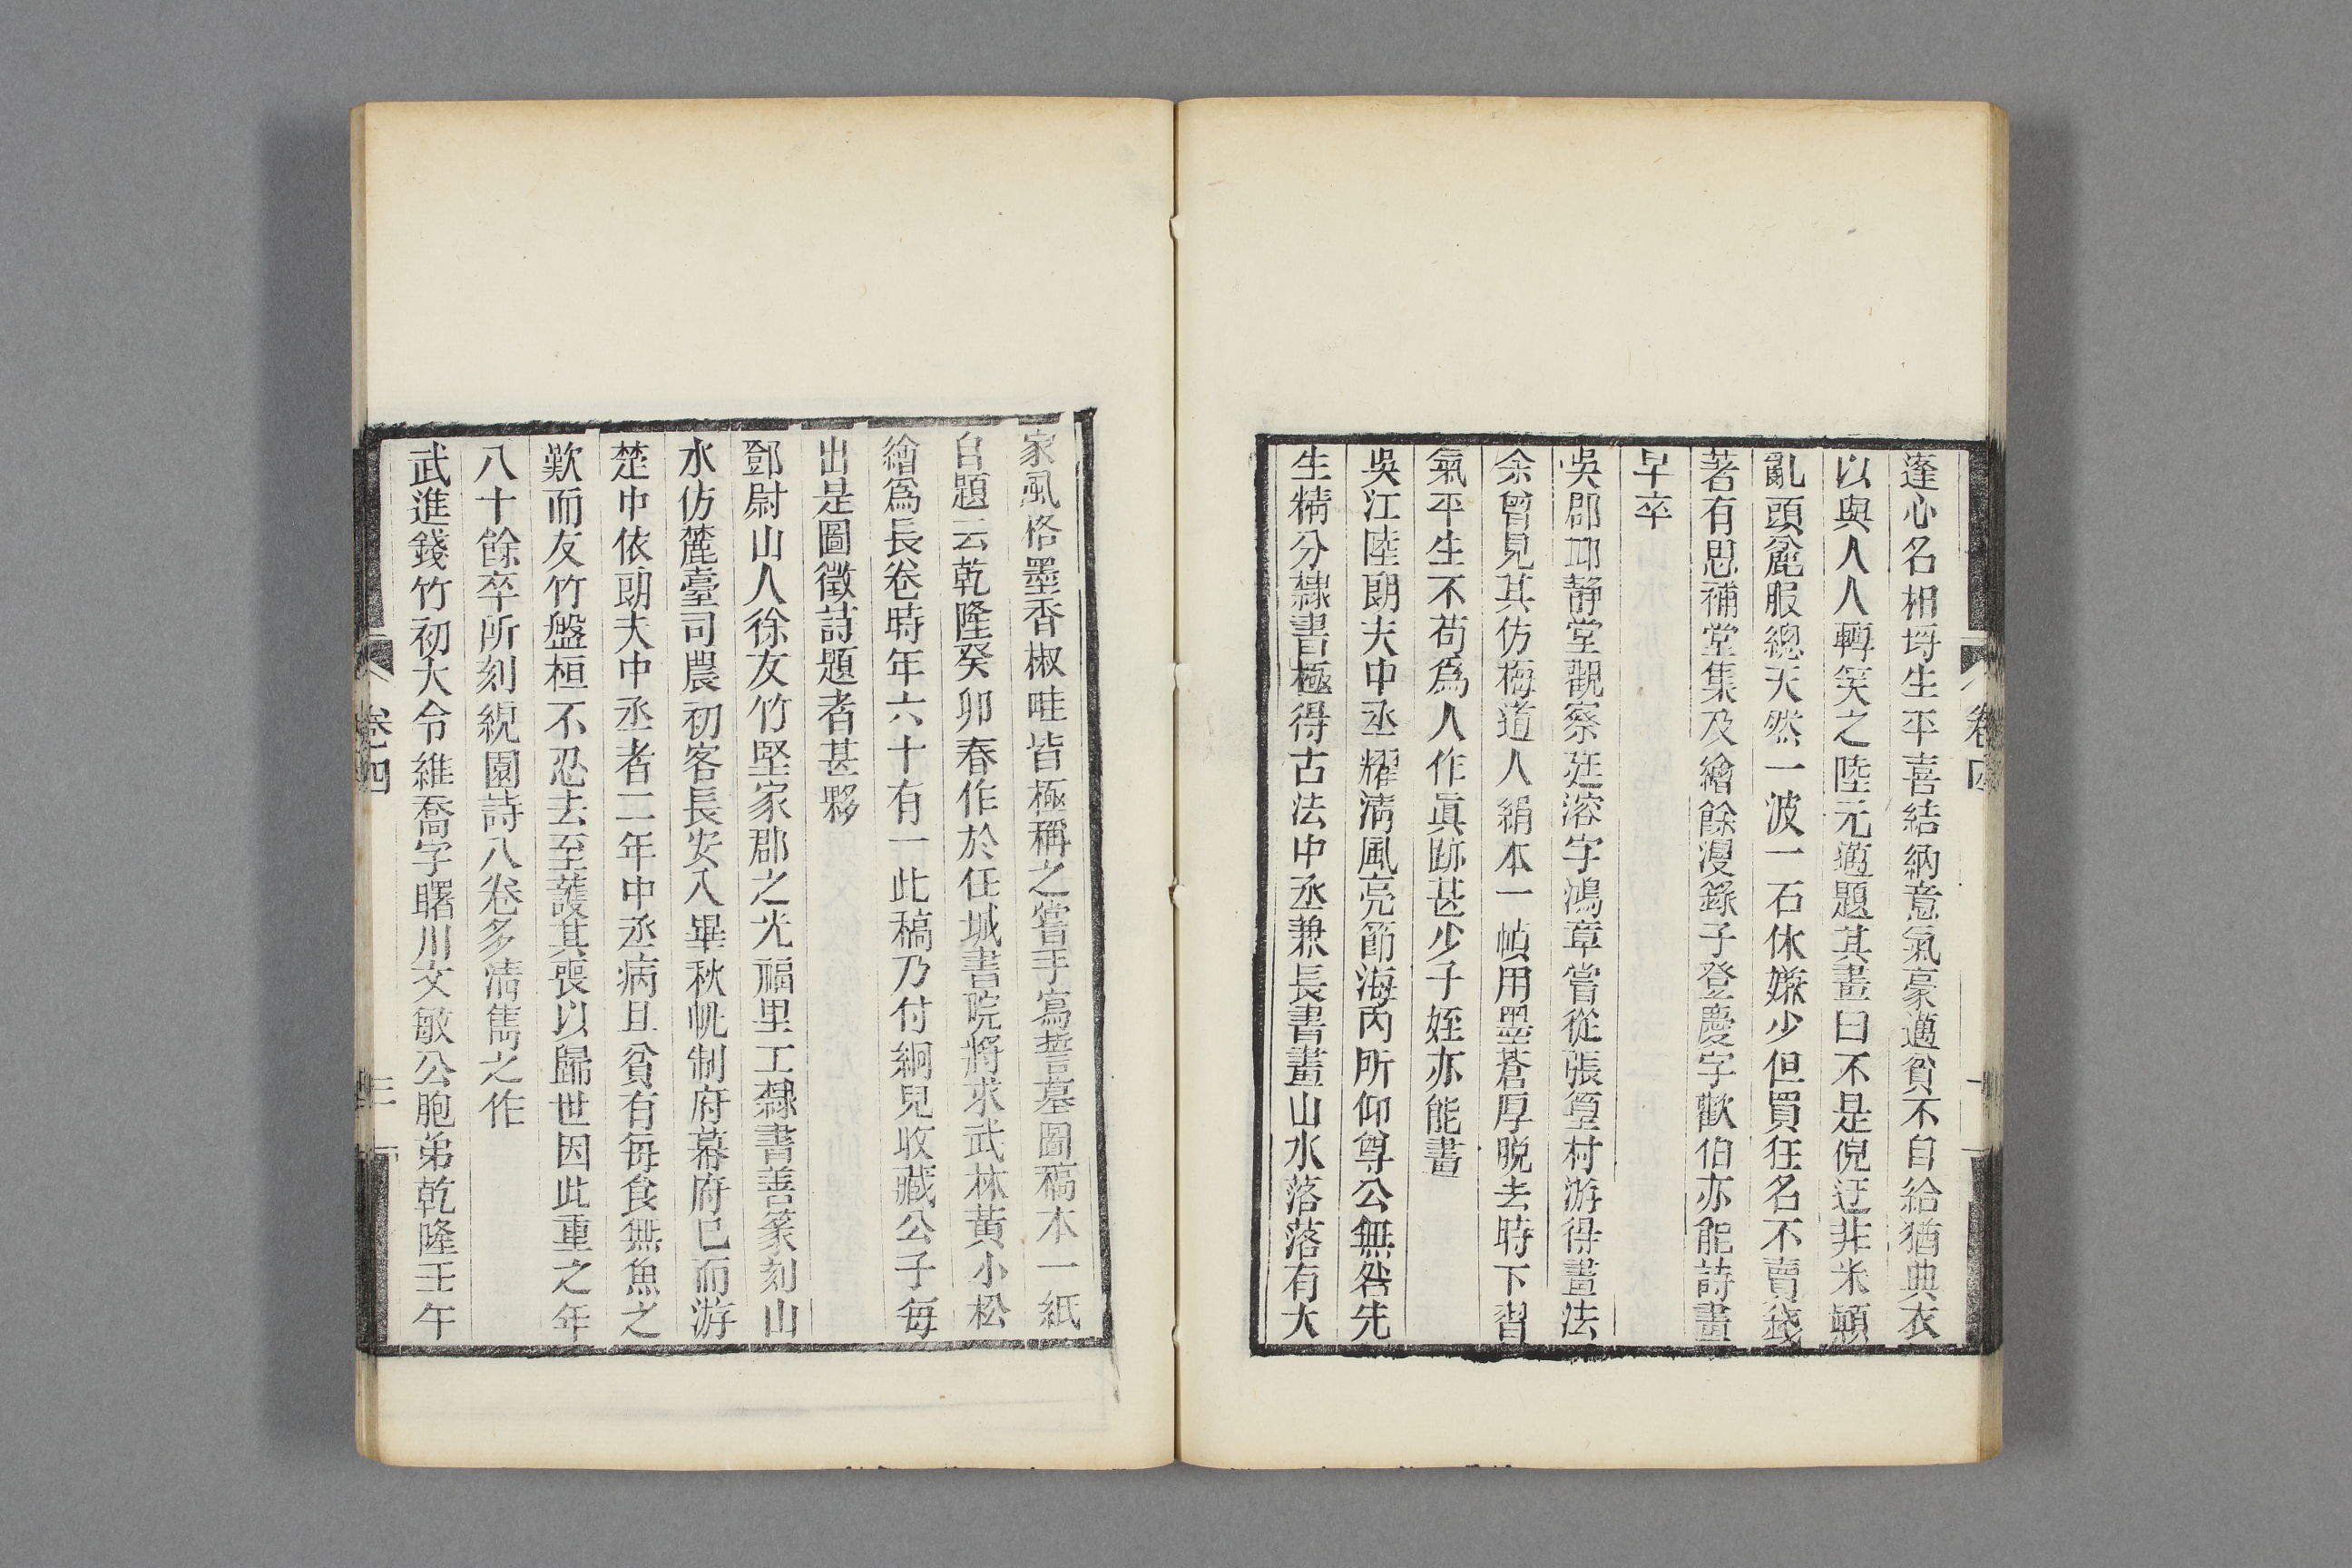 蓬心名相埒生平喜結納意氣豪邁貧不自給猶典衣
以與人人轉笑之陸元邁題其畫曰不是倪迂非米顚
亂頭麄服總天然一波一石休嫌少但買狂名不賣錢
著有思補堂集及繪餘漫錄子登慶字歡伯亦能詩畫
早卒
吳郡邱靜堂觀察廷溶字鴻章嘗從張篁村游得畫法
余曾見其仿梅道人絹本一幀用墨蒼厚脫去時下習
氣平生不苟爲人作眞跡甚少子姪亦能畫
吳江陸朗夫中丞耀淸風亮節海內所仰尊公無咎先
生精分隸書極得古法中丞兼長書畫山水落落有大
卷四
家風格墨香椒畦皆極稱之嘗手寫誓墓圖稿本一紙
自題云乾隆癸卯春作於任城書院將求武林黃小松
繪爲長卷時年六十有一此稿乃付絅兒收藏公子每
出是圖徵詩題者甚夥
鄧尉山人徐友竹堅家郡之光福里工隸書善篆刻山
水仿麓臺司農初客長安入畢秋帆制府幕府已而游
楚中依朗夫中丞者二年中丞病且貧有每食無魚之
歎而友竹盤桓不忍去至護其喪以歸世因此重之年
八十餘卒所刻緄園詩八卷多淸雋之作
武進錢竹初大令維喬字曙川文敏公胞弟乾隆壬午
卷四